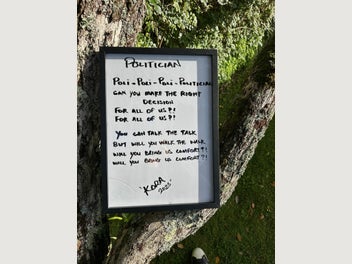 POLITICIAN
POLI-POLI-POLI-POLITICIAN
CAN YOU MAKE THE RIGHT
DECISION
FOR ALL OF US?!
FOR ALL OF US?!
YOU CAN TALK THE TALK
BUT WILL YOU WALK THE WALK
WILL YOU BRING US COMFORT?!
WILL YOU BRING US COMFORT?!
"KORA
2023"